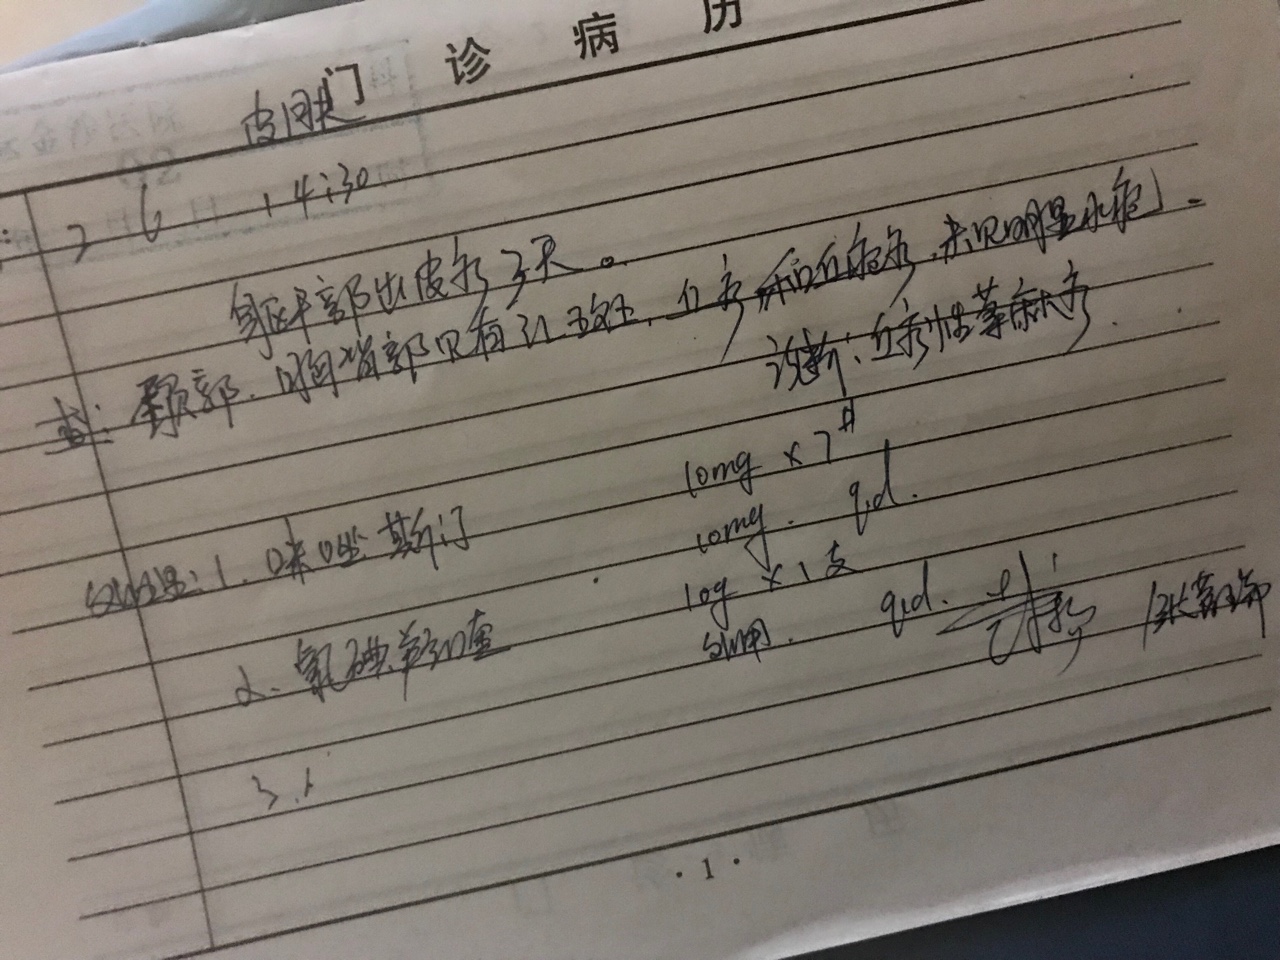 门 诊 病 历
皮肤
2 6 14:30
躯干部出皮疹3天。
查：颈部、胸背部见有红斑、丘疹和丘疱疹，未见明显水疱。
诊断：丘疹性荨麻疹
处理：1. 咪唑斯汀 10mg × 7
10mg. qd.
2. 氯碘羟喹 10g × 1支
外用. qd.
3.
· 1 ·